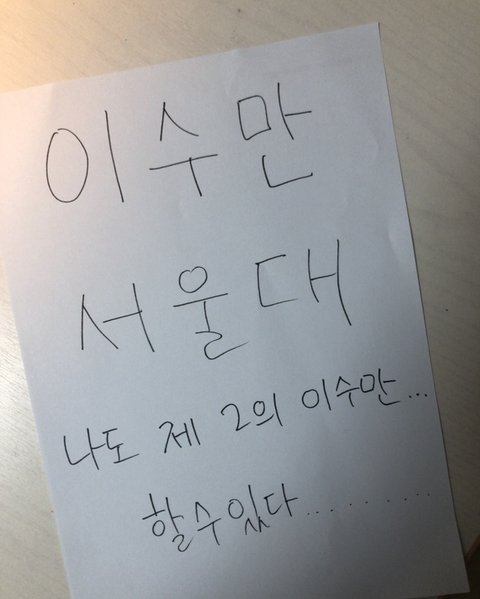 이수만
서울대
나도 제 2의 이수만...
할수있다..........